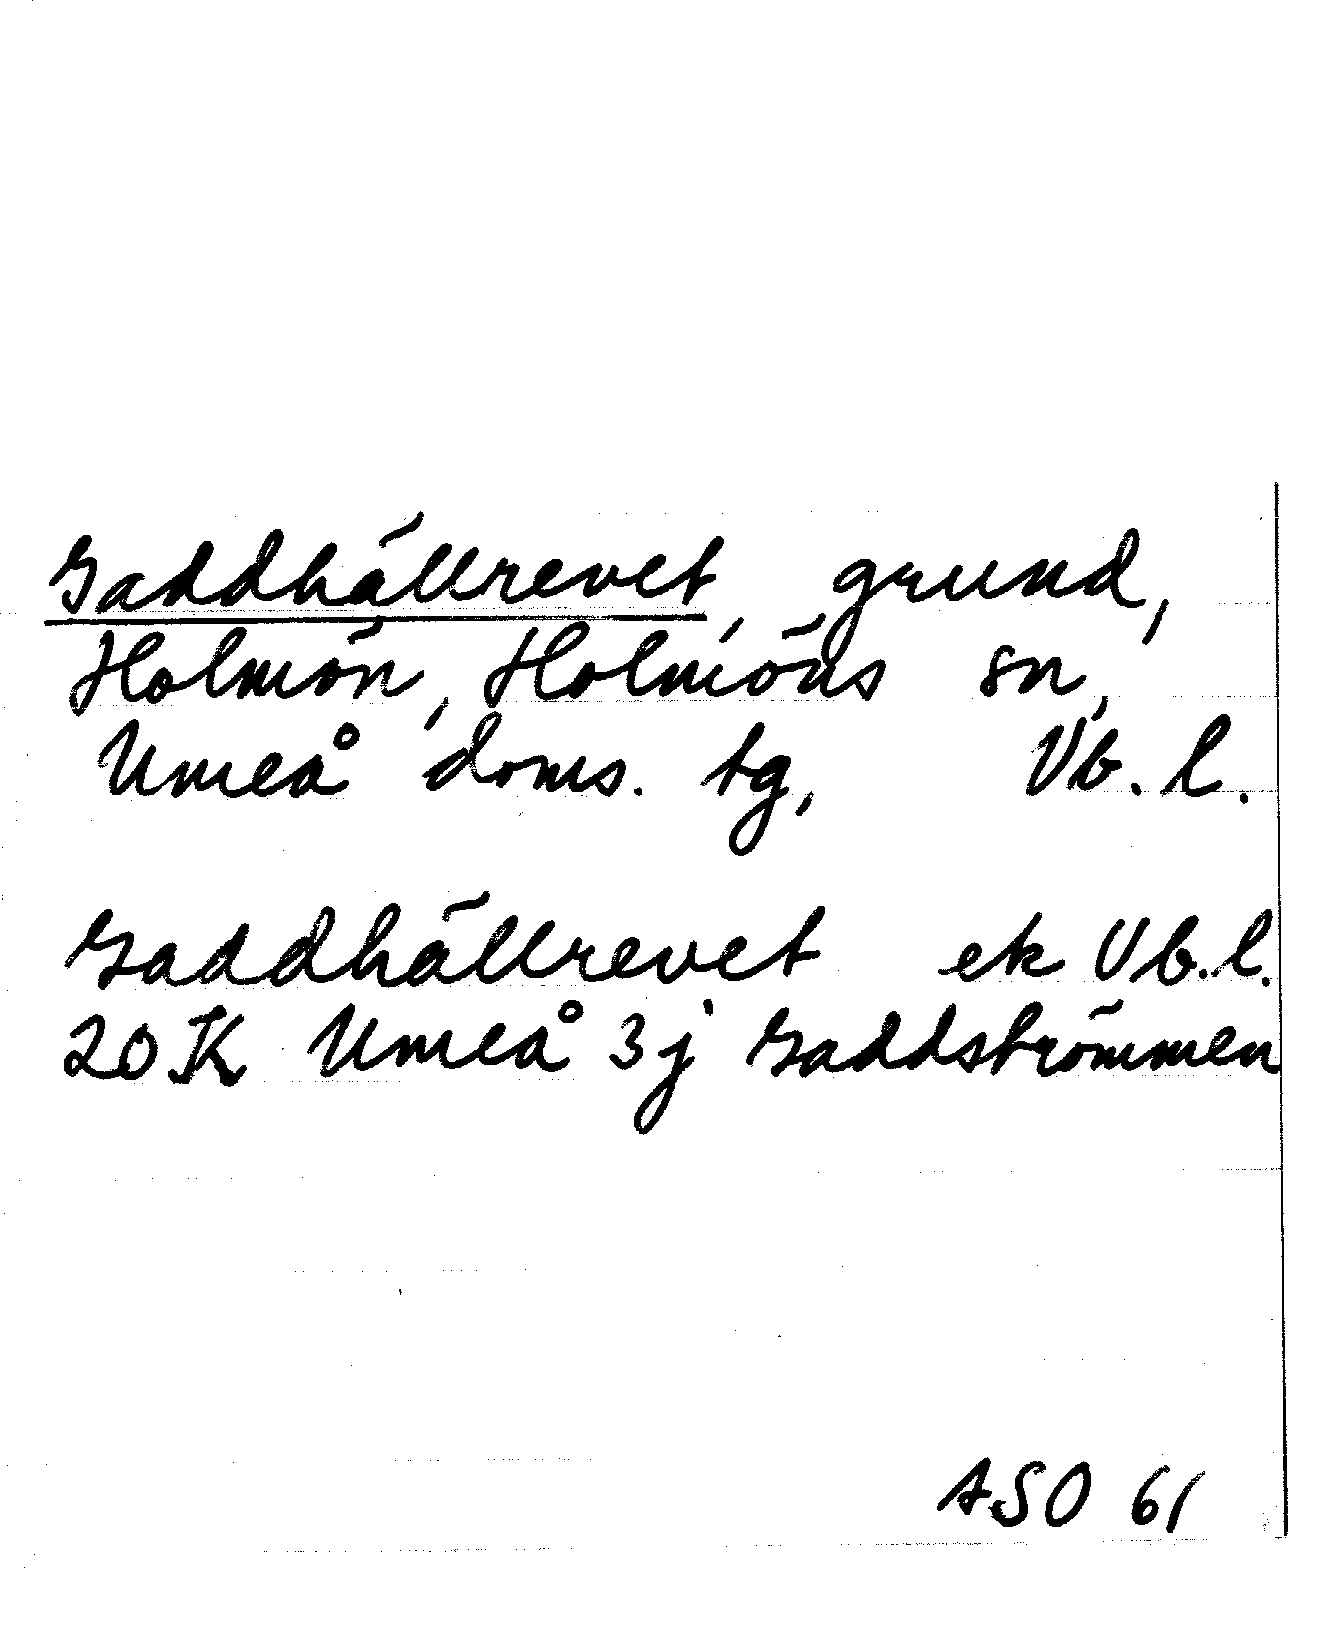 Gaddhällrevet, grund,
Holmön, Holmöns sn,
Umeå doms. tg, Vb. l.
Gaddhällrevet ek Vb.l.
20 K Umeå 3j Gaddströmmen
ASO 61